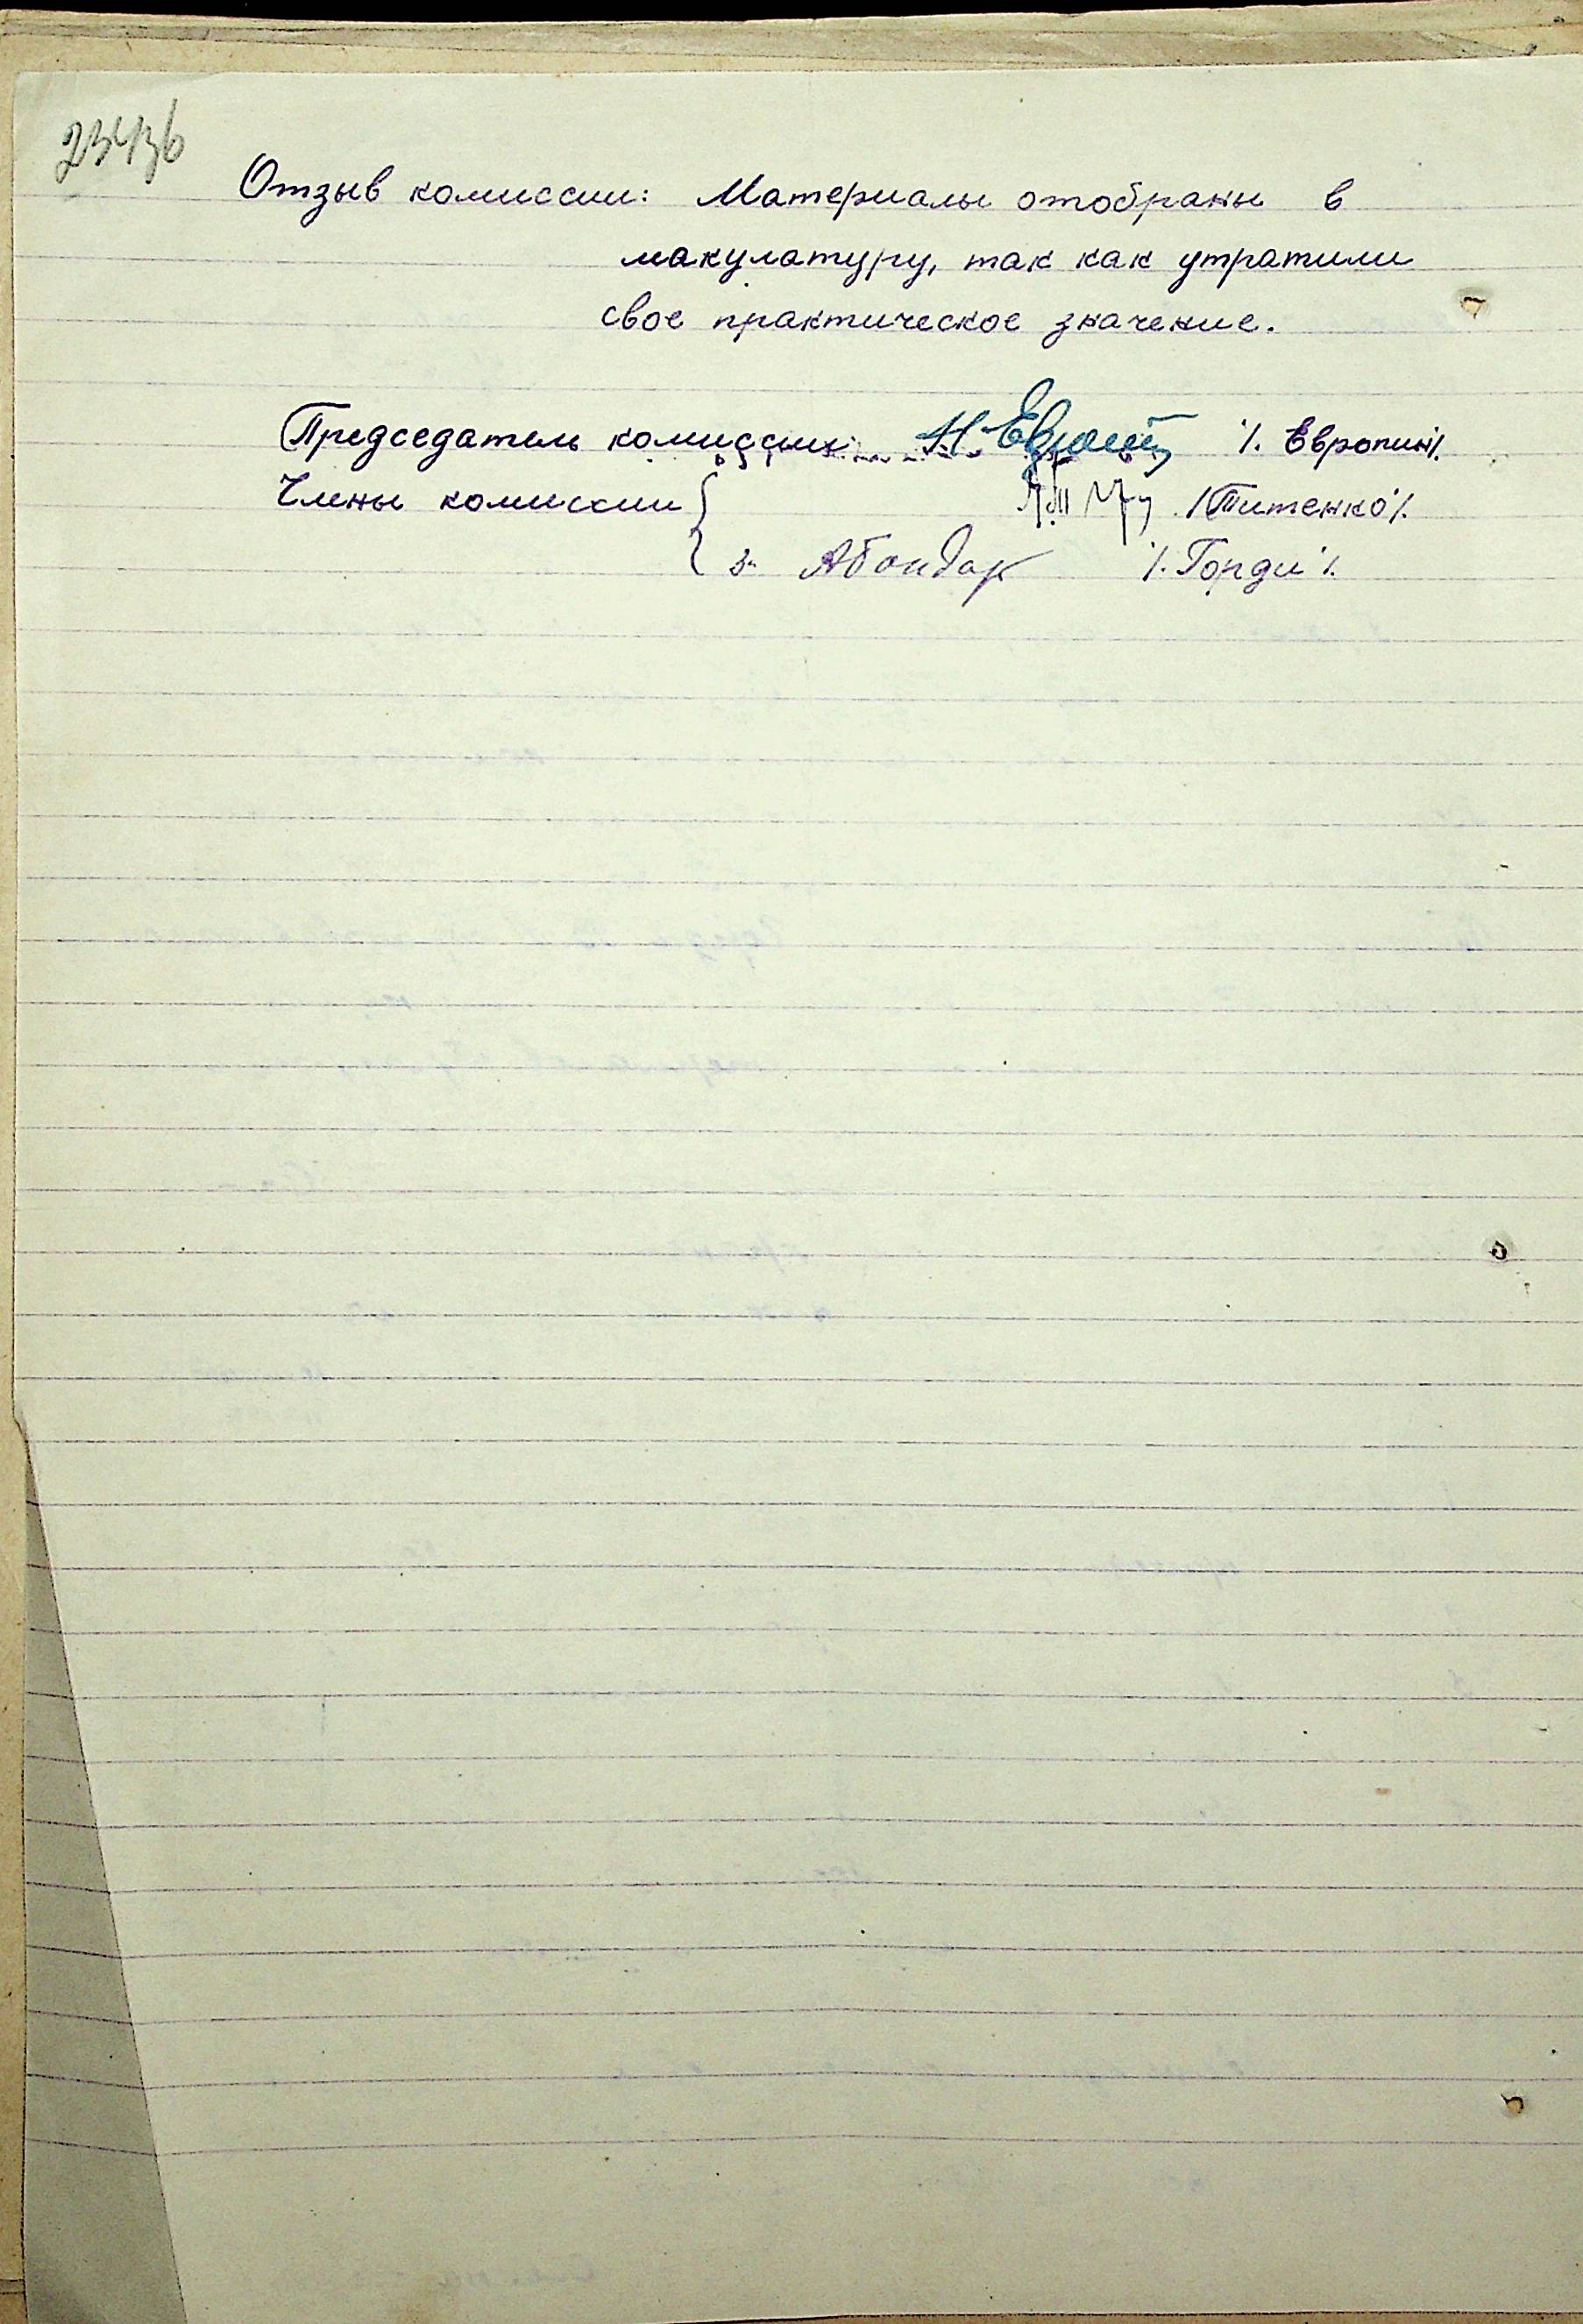 Отзыв комиссии: Материалы отобраны в
макулатуру, так как утратили
свое практическое значение.
Председатель комиссии: Н. Европин /. Европин/.
Члены комиссии /Титенко/.
/. Горди /.